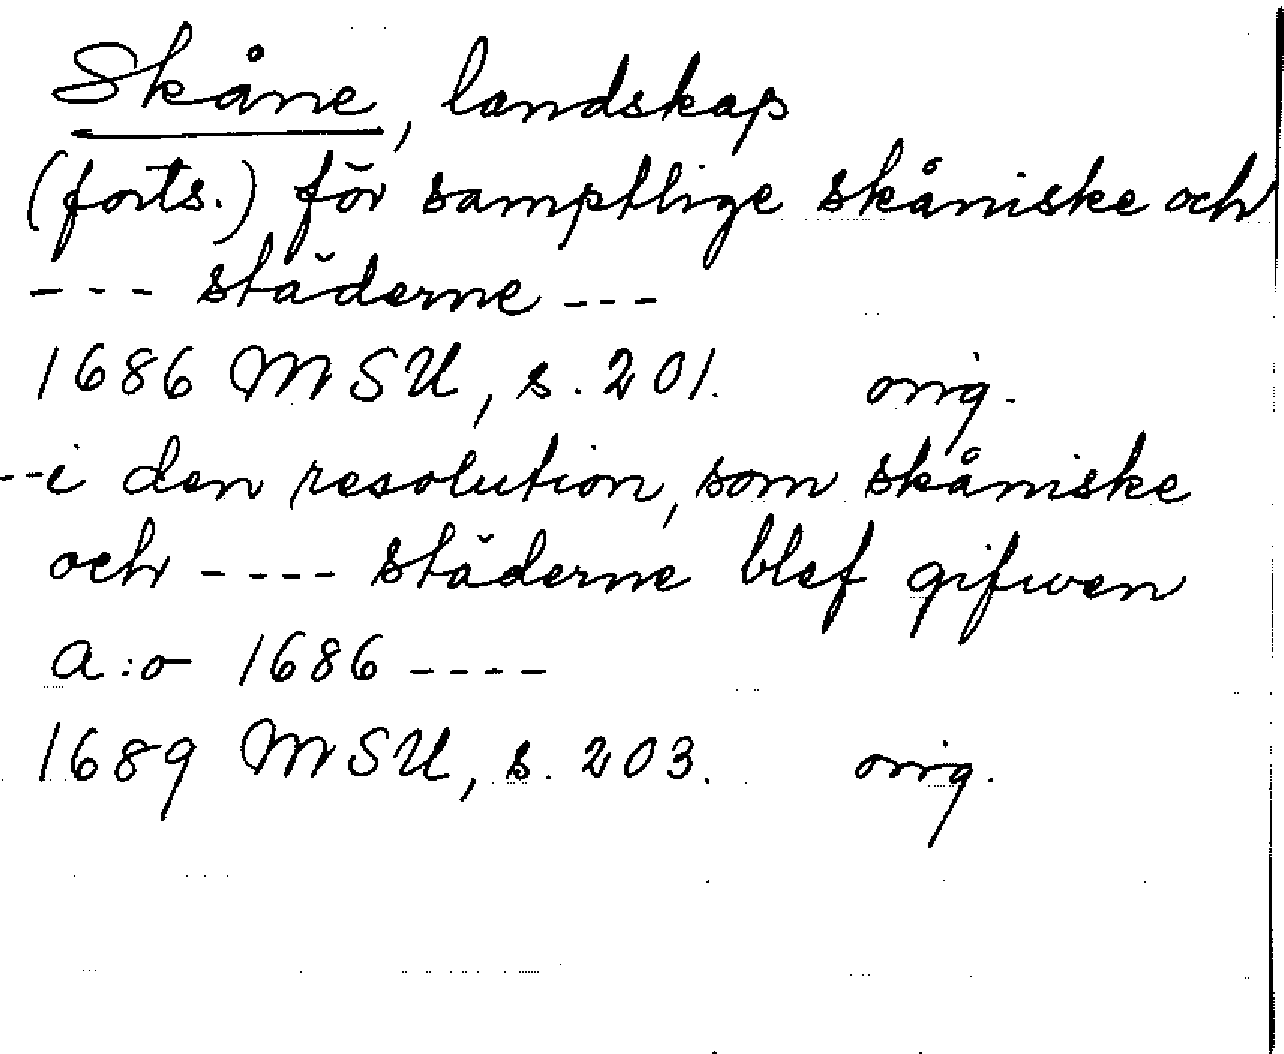 Skåne, landskap
(forts.) för samptlige skåniske och
--- städerne ---
1686 MSU, s. 201. orig.
--i den resolution, som skåniske
och ---- städerne blef gifwen
a:o 1686 ----
1689 MSU, s. 203. orig.